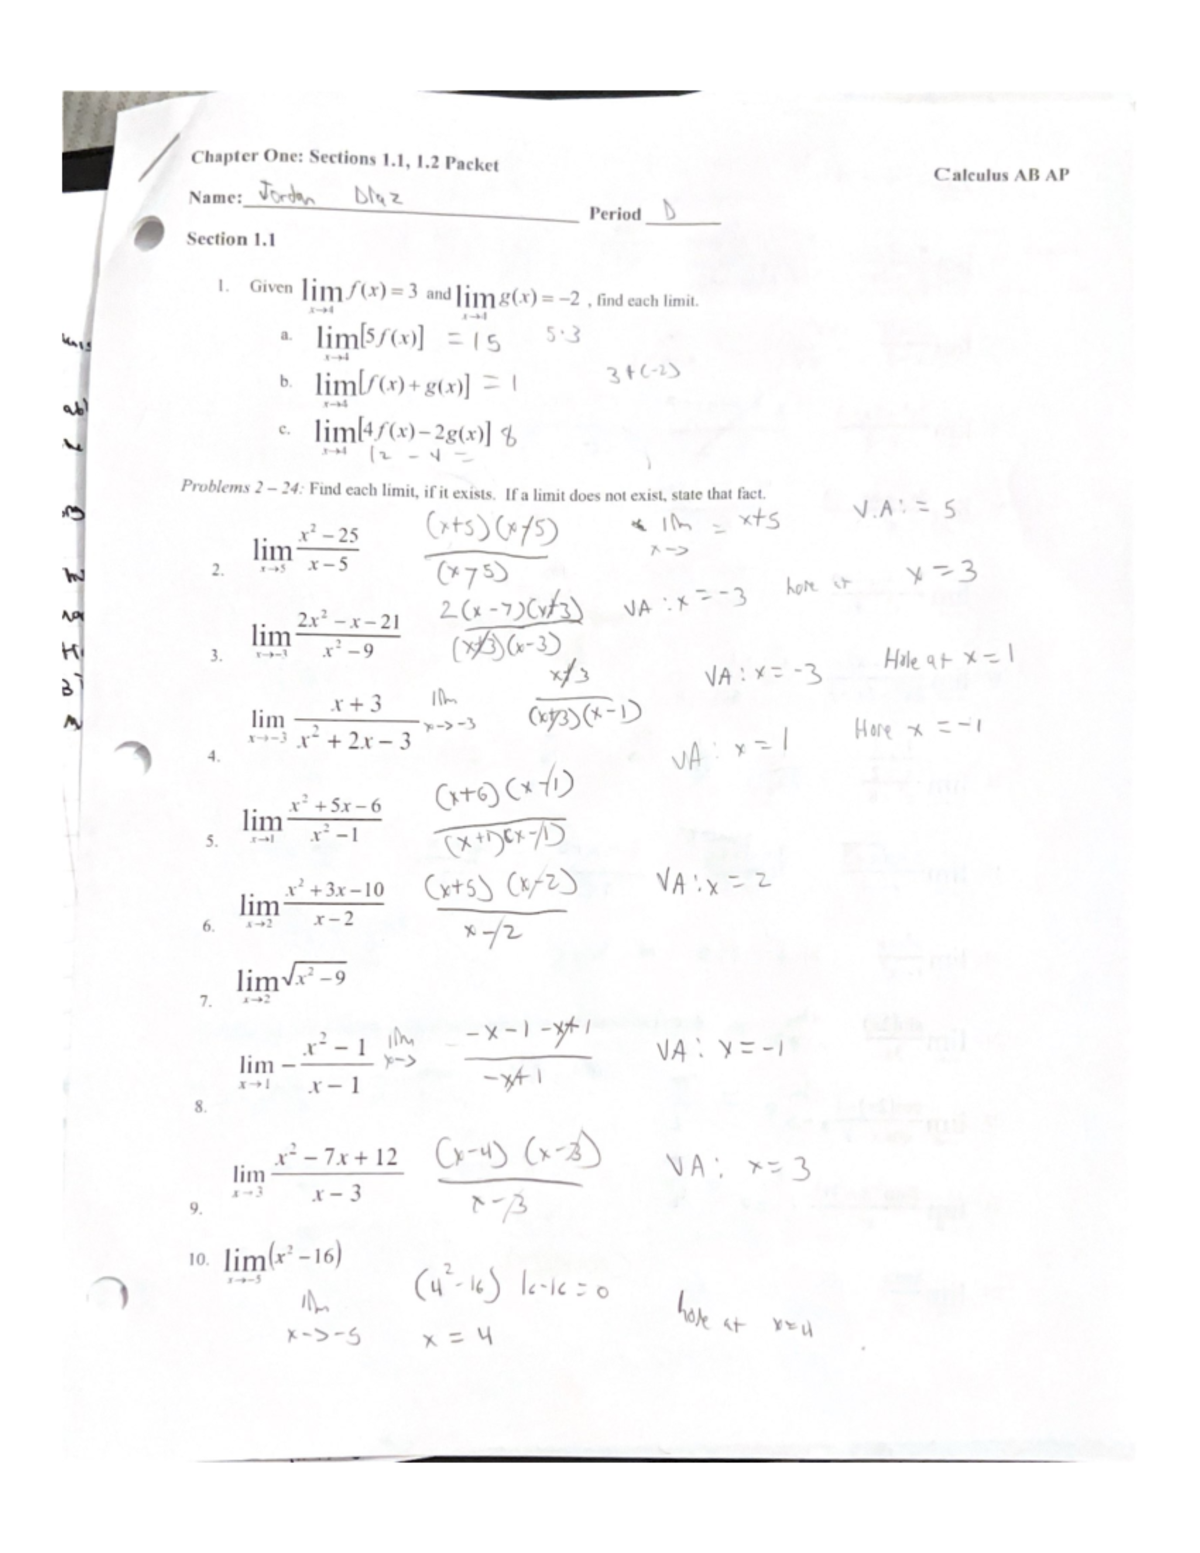 Chapter One: Sections 1.1, 1.2 Packet
Calculus AB AP
Name: Jordan Diaz
Period D
Section 1.1
1. Given lim x→4 f(x) = 3 and lim x→4 g(x) = −2 , find each limit.
a. lim x→4 [5f(x)] = 15 5·3
b. lim x→4 [f(x) + g(x)] = 1 3+(-2)
c. lim x→4 [4f(x) − 2g(x)] 8
12 - 4 =
Problems 2 – 24: Find each limit, if it exists. If a limit does not exist, state that fact.
2. lim x→5 (x² − 25)/(x − 5) (x+5)(x-5)/(x-5) lim x-> = x+5 V.A: = 5
3. lim x→−3 (2x² − x − 21)/(x² − 9) 2(x-7)(x+3)/(x+3)(x-3) VA : x = -3 hole at x = 3
4. lim x→−3 (x + 3)/(x² + 2x − 3) lim x->-3 x+3/(x+3)(x-1) VA : x = -3 Hole at x = 1
5. lim x→1 (x² + 5x − 6)/(x² − 1) (x+6)(x-1)/(x+1)(x-1) VA : x = 1 Hole x = -1
6. lim x→2 (x² + 3x − 10)/(x − 2) (x+5)(x-2)/x-2 VA : x = 2
7. lim x→2 √(x² − 9)
8. lim x→1 − (x² − 1)/(x − 1) lim x-> -x-1 -x+1/-x+1 VA : x = -1
9. lim x→3 (x² − 7x + 12)/(x − 3) (x-4)(x-3)/x-3 VA : x = 3
10. lim x→−5 (x² − 16) (4²-16) 16-16 = 0
lim x->-5 x = 4 hole at x=4